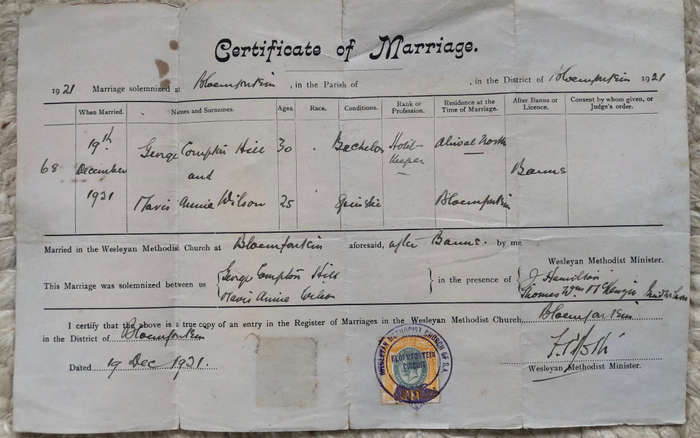 Certificate of Marriage.
1921 Marriage solemnized at Bloemfontein, in the Parish of , in the District of Bloemfontein 1921
When Married. Names and Surnames. Ages. Race. Conditions. Rank or Profession. Residence at the Time of Marriage. After Banns or Licence. Consent by whom given, or Judge's order.
68 19th December 1921
George Compton Hill 30 Bachelor Hotel-Keeper Aliwal North
and Banns
Mavis Annie Wilson 25 Spinster Bloemfontein
Married in the Wesleyan Methodist Church at Bloemfontein aforesaid, after Banns. by me
Wesleyan Methodist Minister.
This Marriage was solemnized between us George Compton Hill Mavis Annie Wilson in the presence of J Hamilton Thomas Wm
I certify that the above is a true copy of an entry in the Register of Marriages in the Wesleyan Methodist Church, Bloemfontein
in the District of Bloemfontein
Dated 19 Dec 1921.
Wesleyan Methodist Minister.
WESLEYAN METHODIST CHURCH OF S.A.
BLOEMFONTEIN CIRCUIT